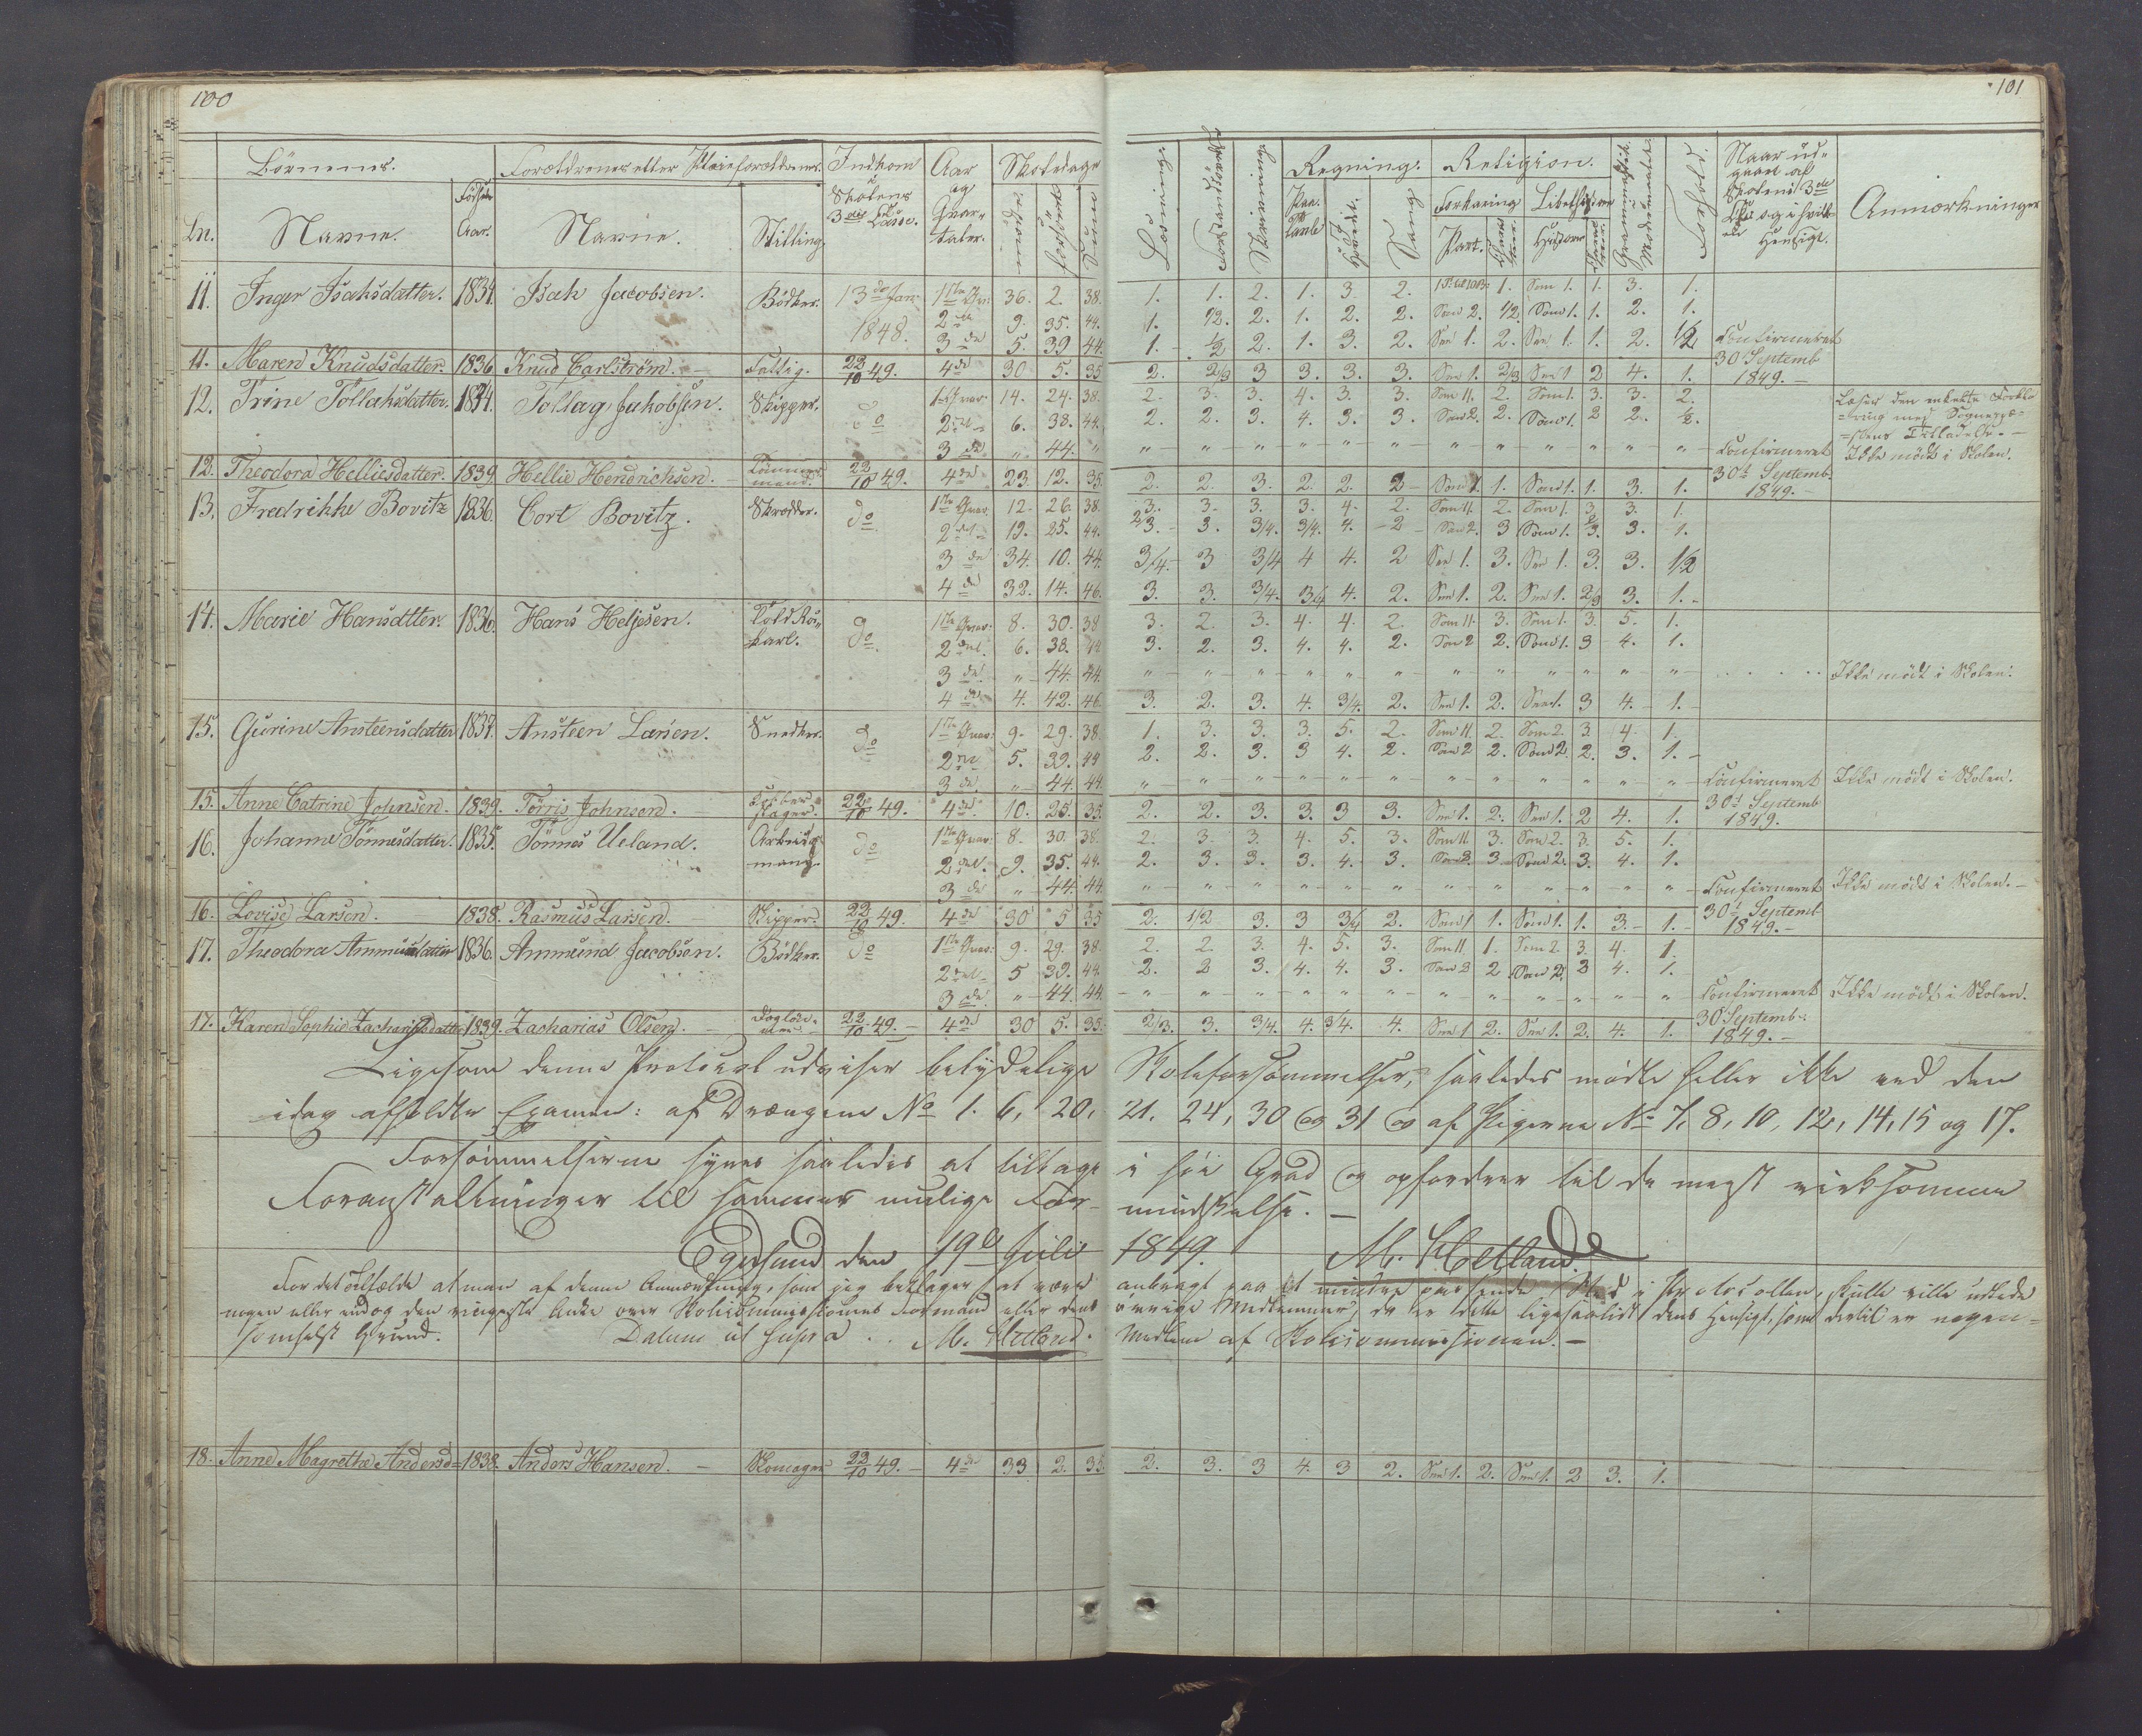 100
101
Børnenes. Forældrenes eller Pleieforældrenes. Indkom i Skolens 3die Classe. Aar og Qvartaler. Skoledage
Ln. Navne. Fødsels Aar. Navne. Stilling. mødte forsømte Sum
Læsning. Forstandsøvelse Skrivning Regning. Paa Tavle I Hovedet. Sang Religion. Forklaring Bibelhistorie Part. Historie Forhold. Naar udgaaet af Skolens 3die Classe og i hvilken Hensigt. Anmærkninger
11. Inger Isaksdatter. 1834. Isak Jacobsen. Bødker. 13de Jan: 1ste Qv: 36. 2. 38. 1. 1. 2. 1. 3. 2. 1. Som 1. 1. 3. 1.
1848. 2det 9. 35. 44. 1. 1/2. 2. 1. 2. 2. Som 2. 1/2. Som 1. 1. 2. 1.
3de 5. 39 44. 1. 1/2 2. 1. 3. 2. Som 1. 2. Som 1. 1. 2. 1/2 Confirmeret
11. Maren Knudsdatter. 1836. Knud Carlstrøm. Fattig. 22/10 49. 4de 30. 5. 35 2. 2/3 3 3. 3. 3. Som 1. 2/3 Som 1 2 4. 1. 30 Septemb 1849.
12. Trine Tollaksdatter. 1834. Tollag Jakobsen. Skipper. do 1ste Qvar: 14. 24. 38. 2. 3. 3. 4. 3. 3. Som 11. 2. Som 1. 3. 3. 2. Læser den enkelte Forkla-
2det 6. 38. 44. 2. 2. 3. 4. 3. 3. Som 2. 2. Som 1. 2 2. 1/2. =ring med Sognepræ-
=stens Tilladelse.
3de " 44. " " " " " " " " " " " " " Confirmeret Ikke mødt i Skolen.
12. Theodora Helliesdatter. 1839. Hellie Hendrichsen. Tømmermand. 22/10 49. 4de 23. 12. 35. 2. 2. 3. 2. 2. 2 Som 1. 1. Som 1. 1. 3. 1. 30te Septemb. 1849.
13. Fredrikke Bovitz 1836. Cort Bovitz. Skrædder. do 1ste Qvar: 12. 26. 38. 3. 3. 3. 3. 4. 2. Som 11. 2. Som 1. 3. 3. 1.
2det 19. 25. 44. 2/3. 3. 3/4. 3/4. 4. 2 Som 2. 3 Som 1. 3. 3. 1.
3de 34. 10. 44. 3/4. 3 3/4 4 4. 2 Som 1. 3. Som 1. 3. 3. 1/2
4de 32. 14. 46. 3. 3. 3/4. 3/4 4. 2. Som 1. 2. Som 1. 2/3 3. 1.
14. Marie Hansdtter. 1836. Hans Heljesen. Toldrokarl. do 1ste Qvar: 8. 30. 38 3. 2. 3. 4. 4. 2. Som 11. 3. Som 1. 3. 5. 1.
2det 6. 38. 44 3. 2. 3. 4. 4. 2. Som 2 2. Som 1. 3 4. 1.
3de " 44. 44. " " " " " " " " " " " " Ikke mødt i Skolen.
4de 4. 42. 46. 3. 2. 3. 4. 3/4. 2. Som 1. 2. Som 1. 3 4. 1.
15. Gurine Ansteensdatter 1834. Ansteen Larsen. Snedker. do 1ste Qvar: 9. 29. 38. 1. 3. 3. 3. 5. 2. Som 11. 2. Som 2. 3. 4. 1.
2det 5. 39. 44 2. 2. 3. 3 4. 2. Som 2 2. Som 2. 2. 3. 1.
3de " 44. 44. " " " " " " " " " " " " Confirmeret Ikke mødt i Skolen.
15. Anne Catrine Johnsen. 1839. Tørris Johnsen. 22/10 49. 4de 10. 25. 35. 2. 2. 3. 3. 3 3. Som 1. 2. Som 1. 2 4. 1. 30te Septemb 1849.
16. Johanne Tønnesdatter. 1835. Tønnes Ueland. Arbeidsmand. do 1ste Qvar: 8. 30. 38. 2. 3. 3. 4. 5. 3. Som 11. 3. Som 2. 3. 5. 1.
2det 9. 35. 44. 2. 3. 3. 3. 4. 3. Som 2. 3. Som 2. 3. 4. 1.
3de " 44. 44. " " " " " " " " " " " " Confirmeret Ikke mødt i Skolen.
16. Lovise Larsen. 1838. Rasmus Larsen. Skipper. 22/10 49. 4de 30 5 35 2. 1/2 3. 3 3/4 2. Som 1 1. Som 1. 1. 3. 1. 30te Septemb 1849.
17. Theodora Ammundsdatter 1836. Ammund Jacobsen. Bødker. do 1ste Qvar: 9. 29. 38. 2. 2. 3. 4. 5. 3. Som 11 1. Som 2 3. 4. 1.
2det 5 39. 44. 2. 2 3. 4. 4. 3. Som 2 2. Som 2. 3 4. 1.
3de " 44. 44. " " " " " " " " " " " " Confirmeret Ikke mødt i Skolen.
17. Karen Sophie Zachariasdatter 1839. Zacharias Olsen. 22/10 49. 4de 30 5. 35. 2/3. 3. 3/4. 4. 3/4. 4. Som 1 2. Som 1. 2. 4. 1. 30 Septemb. 1849.
Ligesom denne Protocol udviser betydelige Skoleforsømmelser, saaledes mødte heller ikke ved den
idag afholdte Examen: af Drængene No 1. 6, 20, 21. 24, 30 og 31 og af Pigerne No 7, 8, 10, 12, 14, 15 og 17.
Forsømmelserne synes saaledes at tiltage i høi Grad og opfordrer til de mest virksomme
Foranstaltninger til sammes mulige Formindskelse.
Egersund den 19de Juli 1849. M. Hetland.
For det Tilfælde at man af denne Anmærkning, som jeg beklager at være anbragt paa et mindre passende Sted i Protocollen, skulle ville udlede
nogen eller endog den ringeste Anke over Skolecommissionens Formand eller dens øvrige Medlemmer, da er dette ligesaalidt dens Hensigt, som dertil er nogen-
somhelst Grund. Datum ut supra. M. Hetland. Medlem af Skolecommissionen.
18. Anne Magrethe Andersd= 1838. Anders Hansen. Skomager 22/10 49. 4de 33 2. 35. 2. 3. 3 4. 3 2. Som 1. 2. Som 1. 2 3. 1.